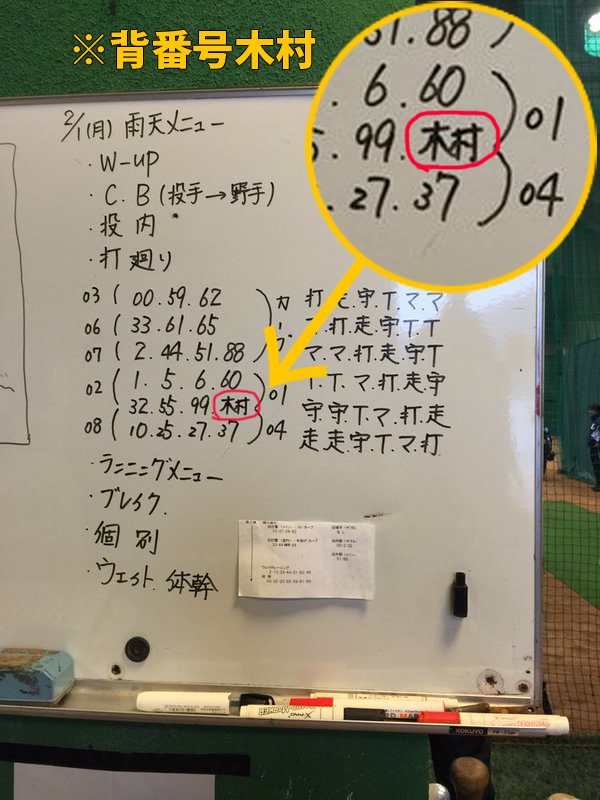 ※背番号木村
51.88
.6.60
01
5.99.木村
.27.37
04
2/1(月) 雨天メニュー
・W-UP
・C.B(投手→野手)
・投内
・打廻り
03 ( 00.59.62 カ 打.走.守.T.マ.マ
06 ( 33.61.65 ー .打.走.守.T.T
07 ( 2.44.51.88 ブ マ.マ.打.走.守.T
02 ( 1.5.6.60 01 T.T.マ.打.走.守
32.55.99.木村 守.守.T.マ.打.走
08 ( 10.25.27.37 04 走.走.守.T.マ.打
・ランニングメニュー
・ブレイク
・個別
・ウェイト.体幹
KOKUYO